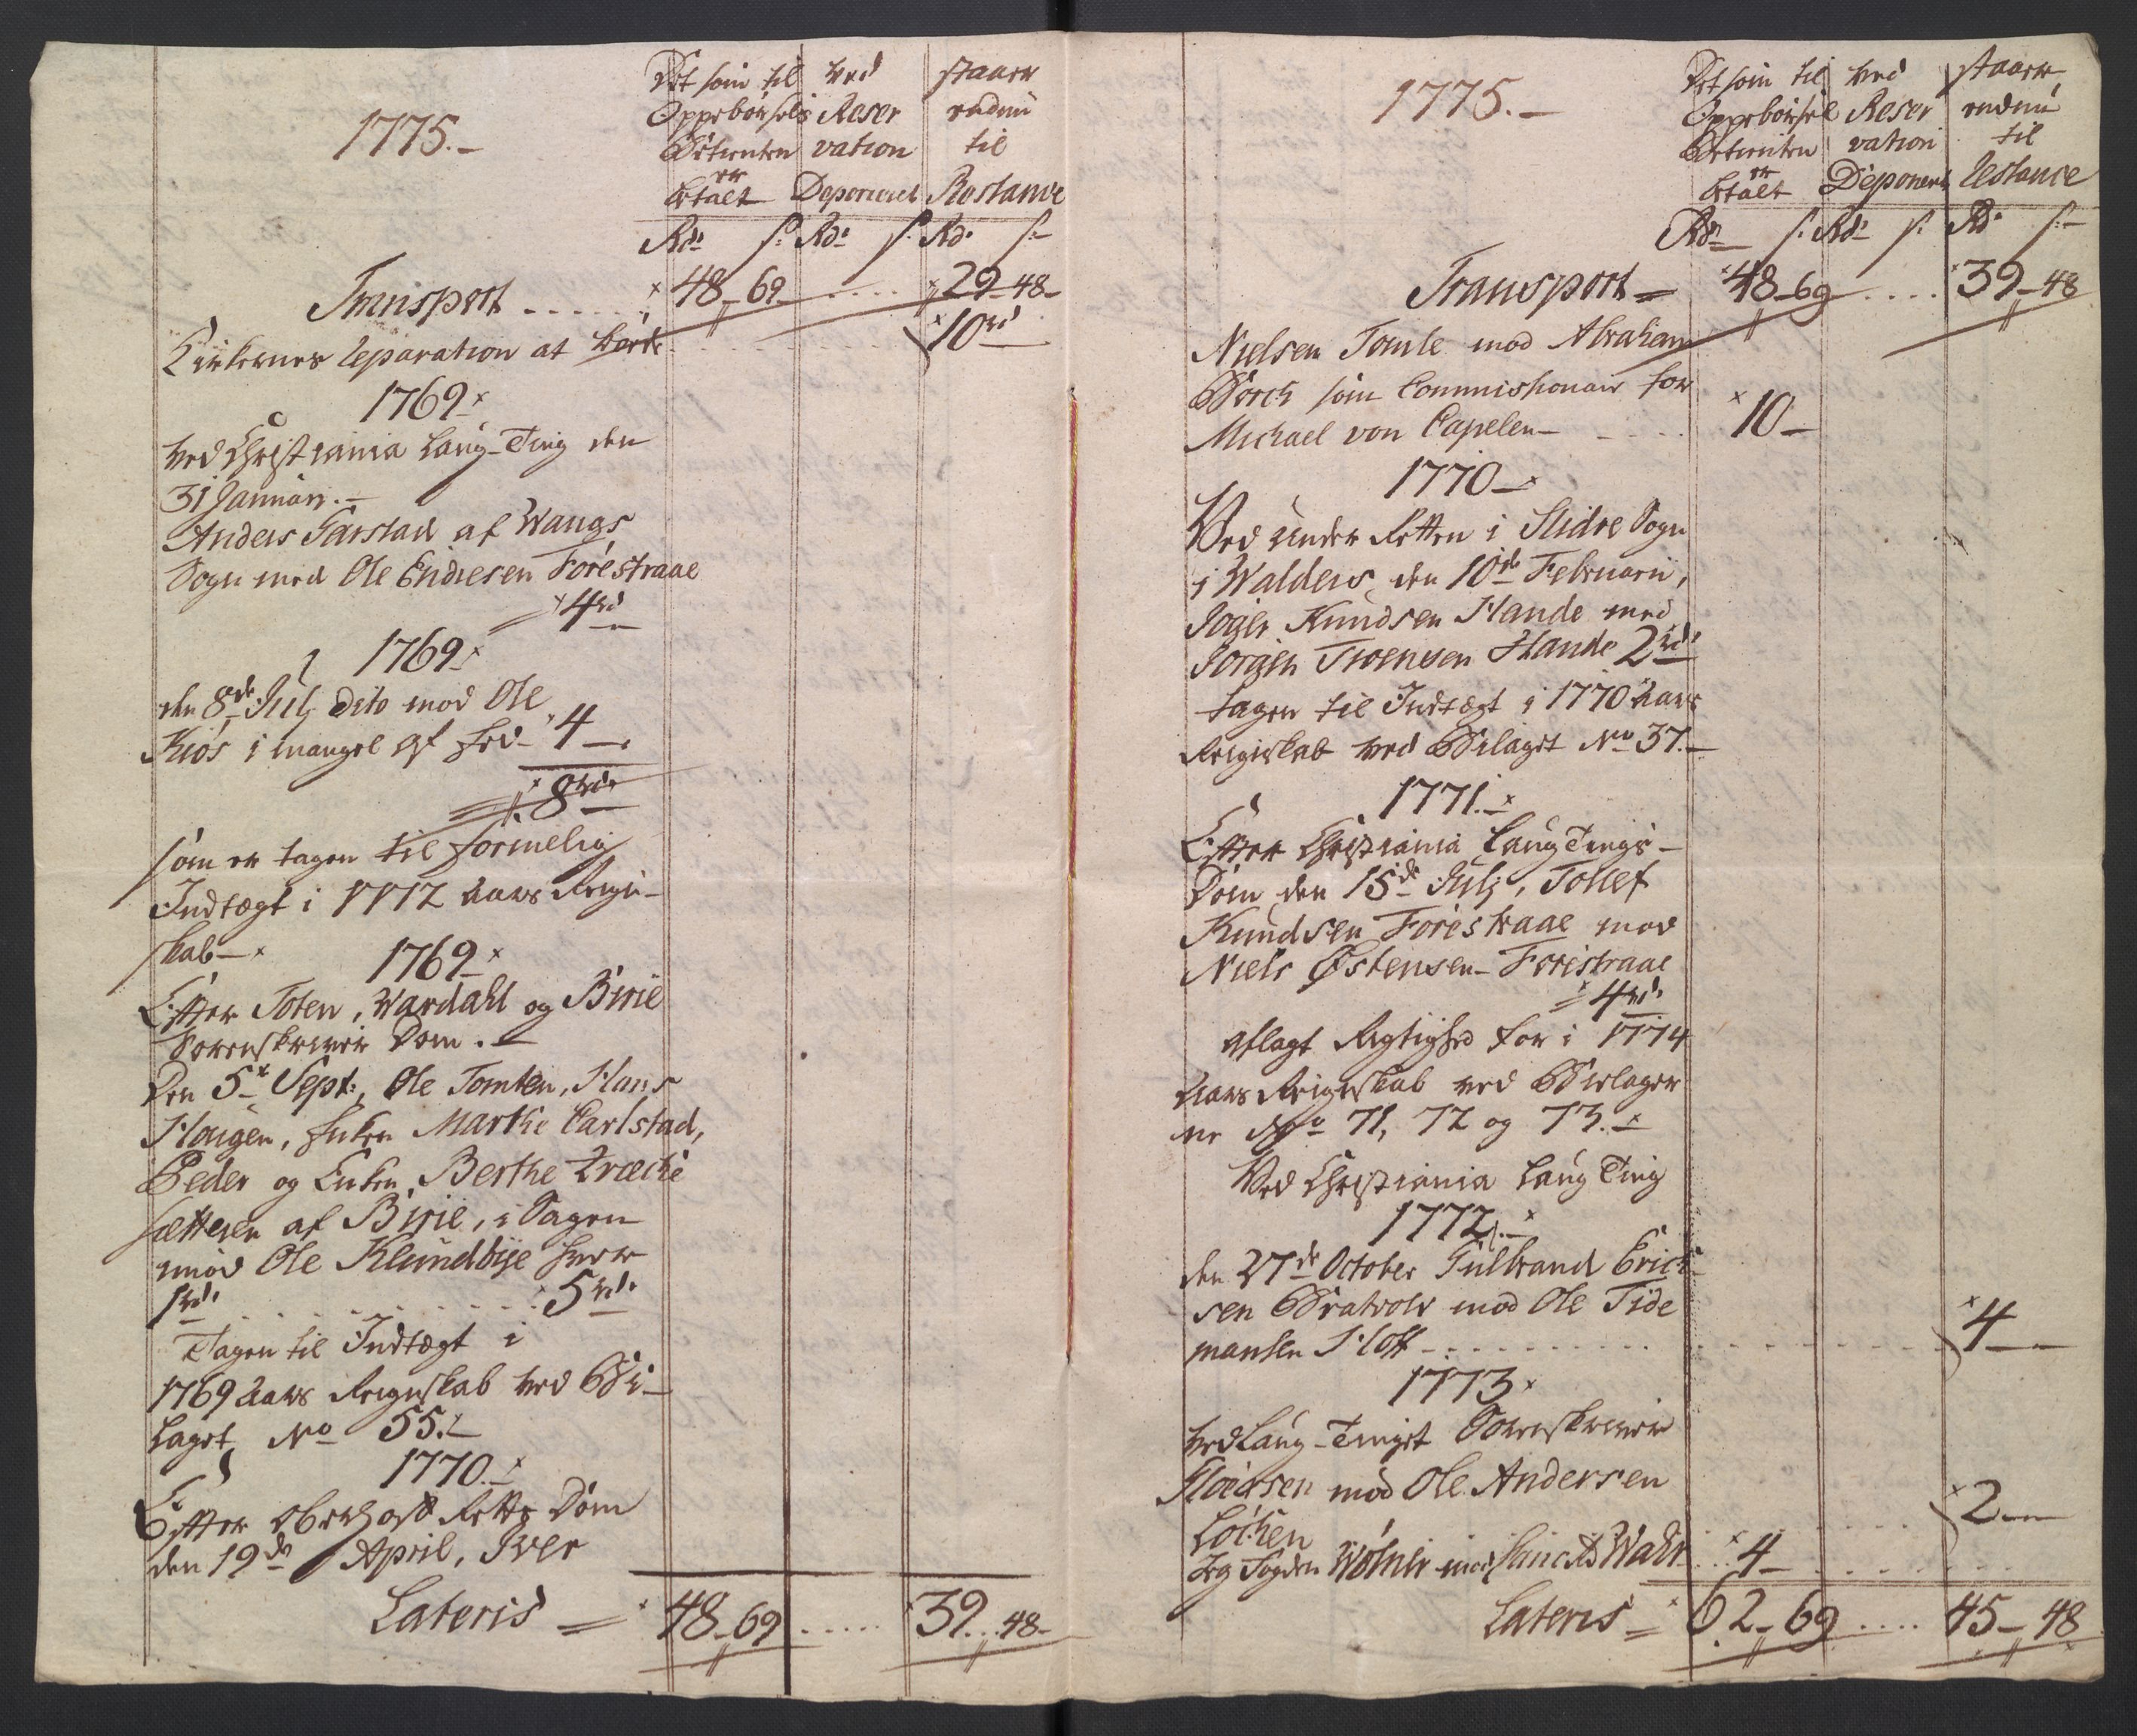 1775.-
Det som til
Oppebørsels
Betienten
er
betalt
ved
Reser
vation
Deponeret
staaer
endnu
til
Restance
Rdr. s: Rdr. s: Rdr. s:
Transport ...... 48-69- .... 29-48-
Kirkernes Reparation at ... 10rd
1769
ved Christiania Laug-Ting den
31 Januari.-
Anders Garstad af Wangs
Sogn mod Ole Endresen Forestraae
4rd
1769
den 8de Julj dito mod Ole
Kiös i mangel af Eed - 4 -
8rd
som er tagen til formelig
Indtægt i 1772 Aars Regn-
skab-
1769
Efter Toten, Wardahl og Birie
Sorenskriver Dom.-
Den 5te Sept:, Ole Tomten, Hans
Haugen, Enken Marthe Carlstad,
Peder og Enken Berthe Kræcke
sætteren af Birie, i Sagen
mod Ole Klundbye hver
1rd. ........ 5rd.
Tagen til Indtægt i
1769 Aars Regnskab ved Bi-
laget No 55.-
1770.-
Efter Oberhof Retts Dom
den 19de April, Iver
Lateris = 48-69 ..... 39...48-
1775.-
Det som til
Oppebørsel
Betienten
er
betalt
ved
Reser
vation
Deponert
staaer
endnu
til
Restance
Rdr. s: Rdr. s: Rd. s:
Transport = 48-69 .... 39-48
Nielsen Tomle mod Abraham
Borch som Commissionair for
Michael von Capelen - ... 10-
1770-
Ved Under Retten i Slidre Sogn
i Walders den 10de Februarii,
Joger Knudsen Hande mod
Jørgen Torensen Hande 2rd.
tagen til Indtægt i 1770 Aars
Regnskab ved Bilaget No 37.-
1771.-
Efter Christiania Laug Tings-
Dom den 15de Julj, Tollef
Knudsen Forestraae mod
Niels Østensen Forestraae
4rd.
aflagt Rigtighed for i 1774
Aars Regnskab ved Bielager
ne No 71, 72 og 73.-
Ved Christiania Laug Ting
1772.-
den 27de October Gulbrand Erich-
sen Bratvold mod Ole Tide
mansen Hoff ........ 4-
1773
ved Laug-Tinget Sorenskriver
Floedsen mod Ole Andersen
Løcken ..... 2-
Fogden Wølner mod Wahr ... 4- ......
Lateris = 62-69 .... 45-48